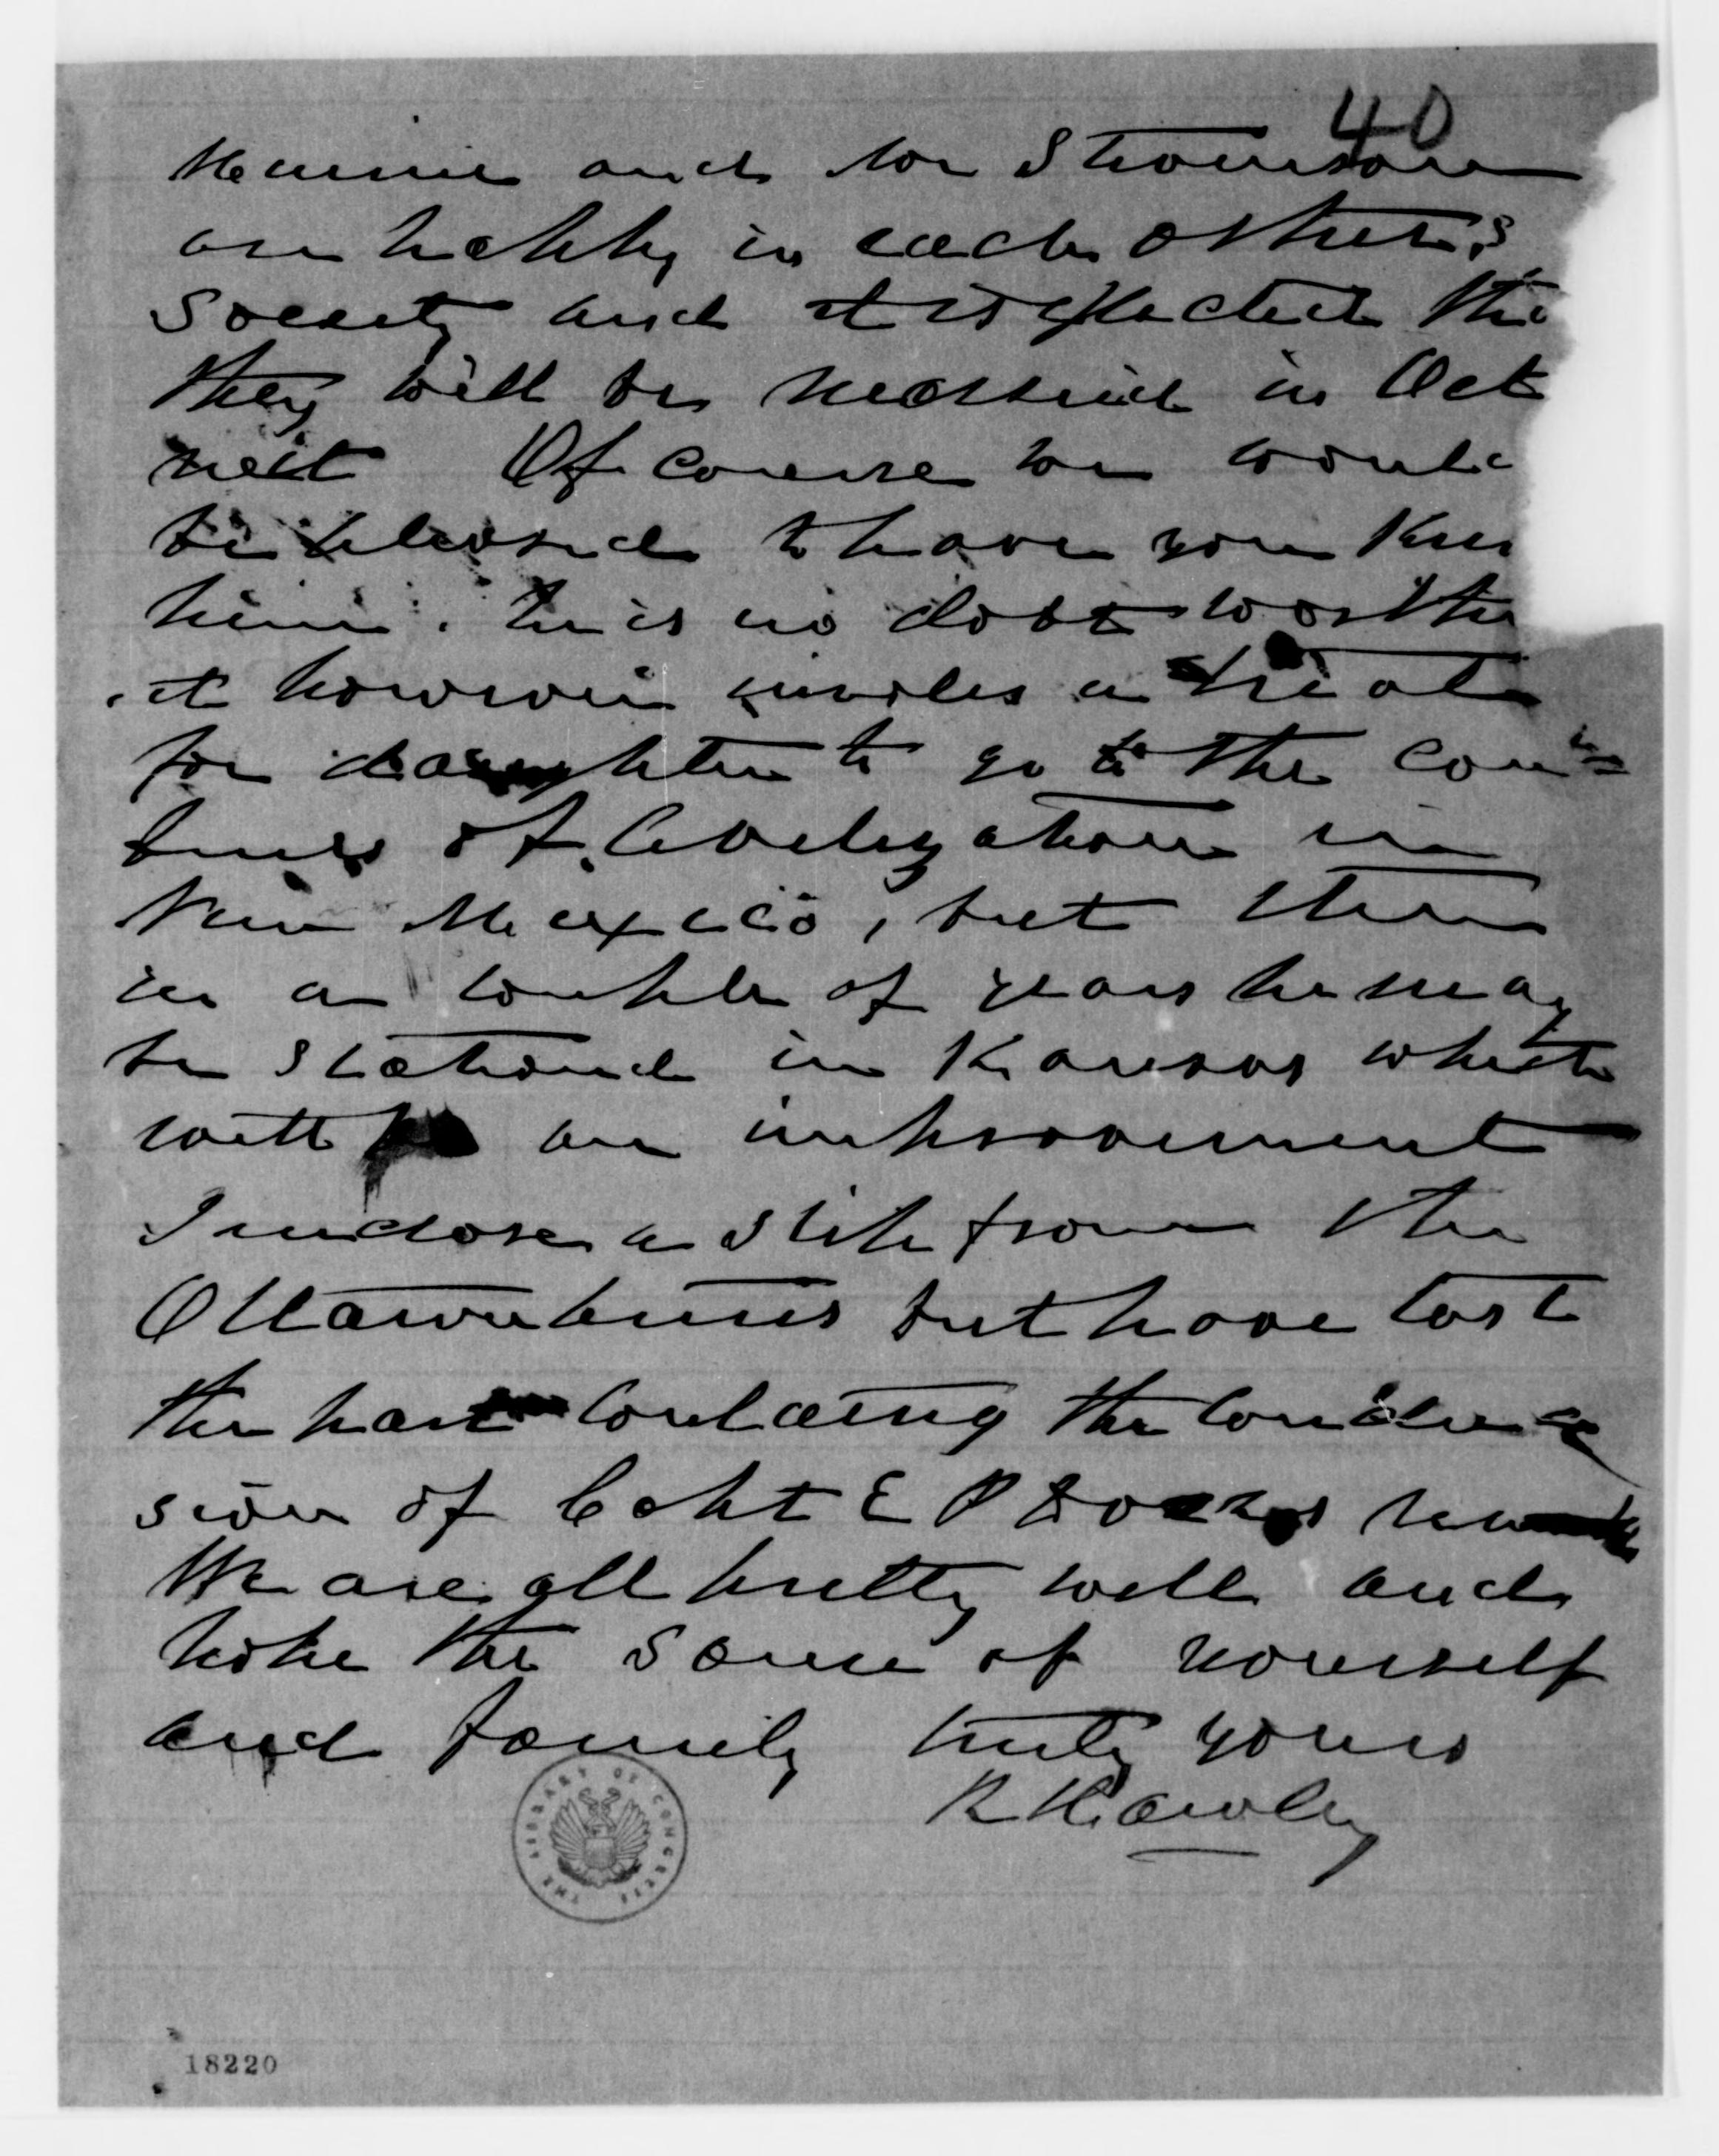 40
and Mr Thomson
are happy in each others
Society and it is expected tha
they will be married in Oct
next Of course we would
be pleased to have you kno
him. he is no dobt worthy
it however involes a trial
for daughter to go to the con=
fines of Civilization in
New Mexico, but then
in a couple of years he may
be stationed in Kansas which
will be an improvement
I inclose a slip from the
Ottawa times but have lost
the part containg the conclu
sion of Capt E P
We are all pretty well and
hope the same of yourself
and family truly yours
R H
THE LIBRARY OF CONGRESS
18220